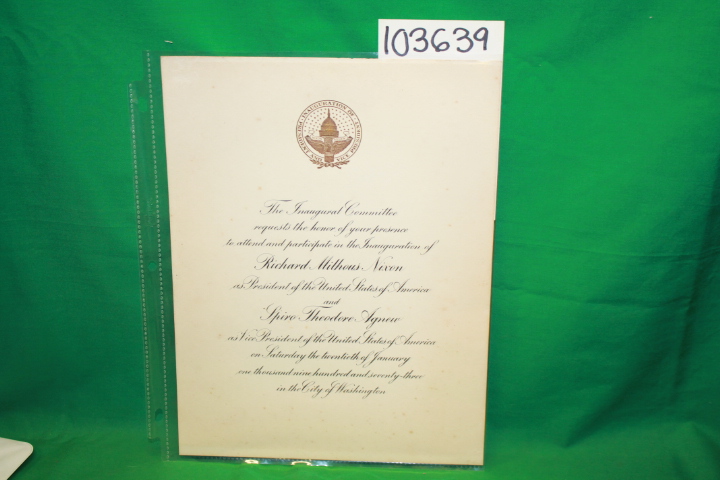 103639
INAUGURATION OF PRESIDENT AND VICE PRESIDENT
The Inaugural Committee
requests the honor of your presence
to attend and participate in the Inauguration of
Richard Milhous Nixon
as President of the United States of America
and
Spiro Theodore Agnew
as Vice President of the United States of America
on Saturday the twentieth of January
one thousand nine hundred and seventy-three
in the City of Washington